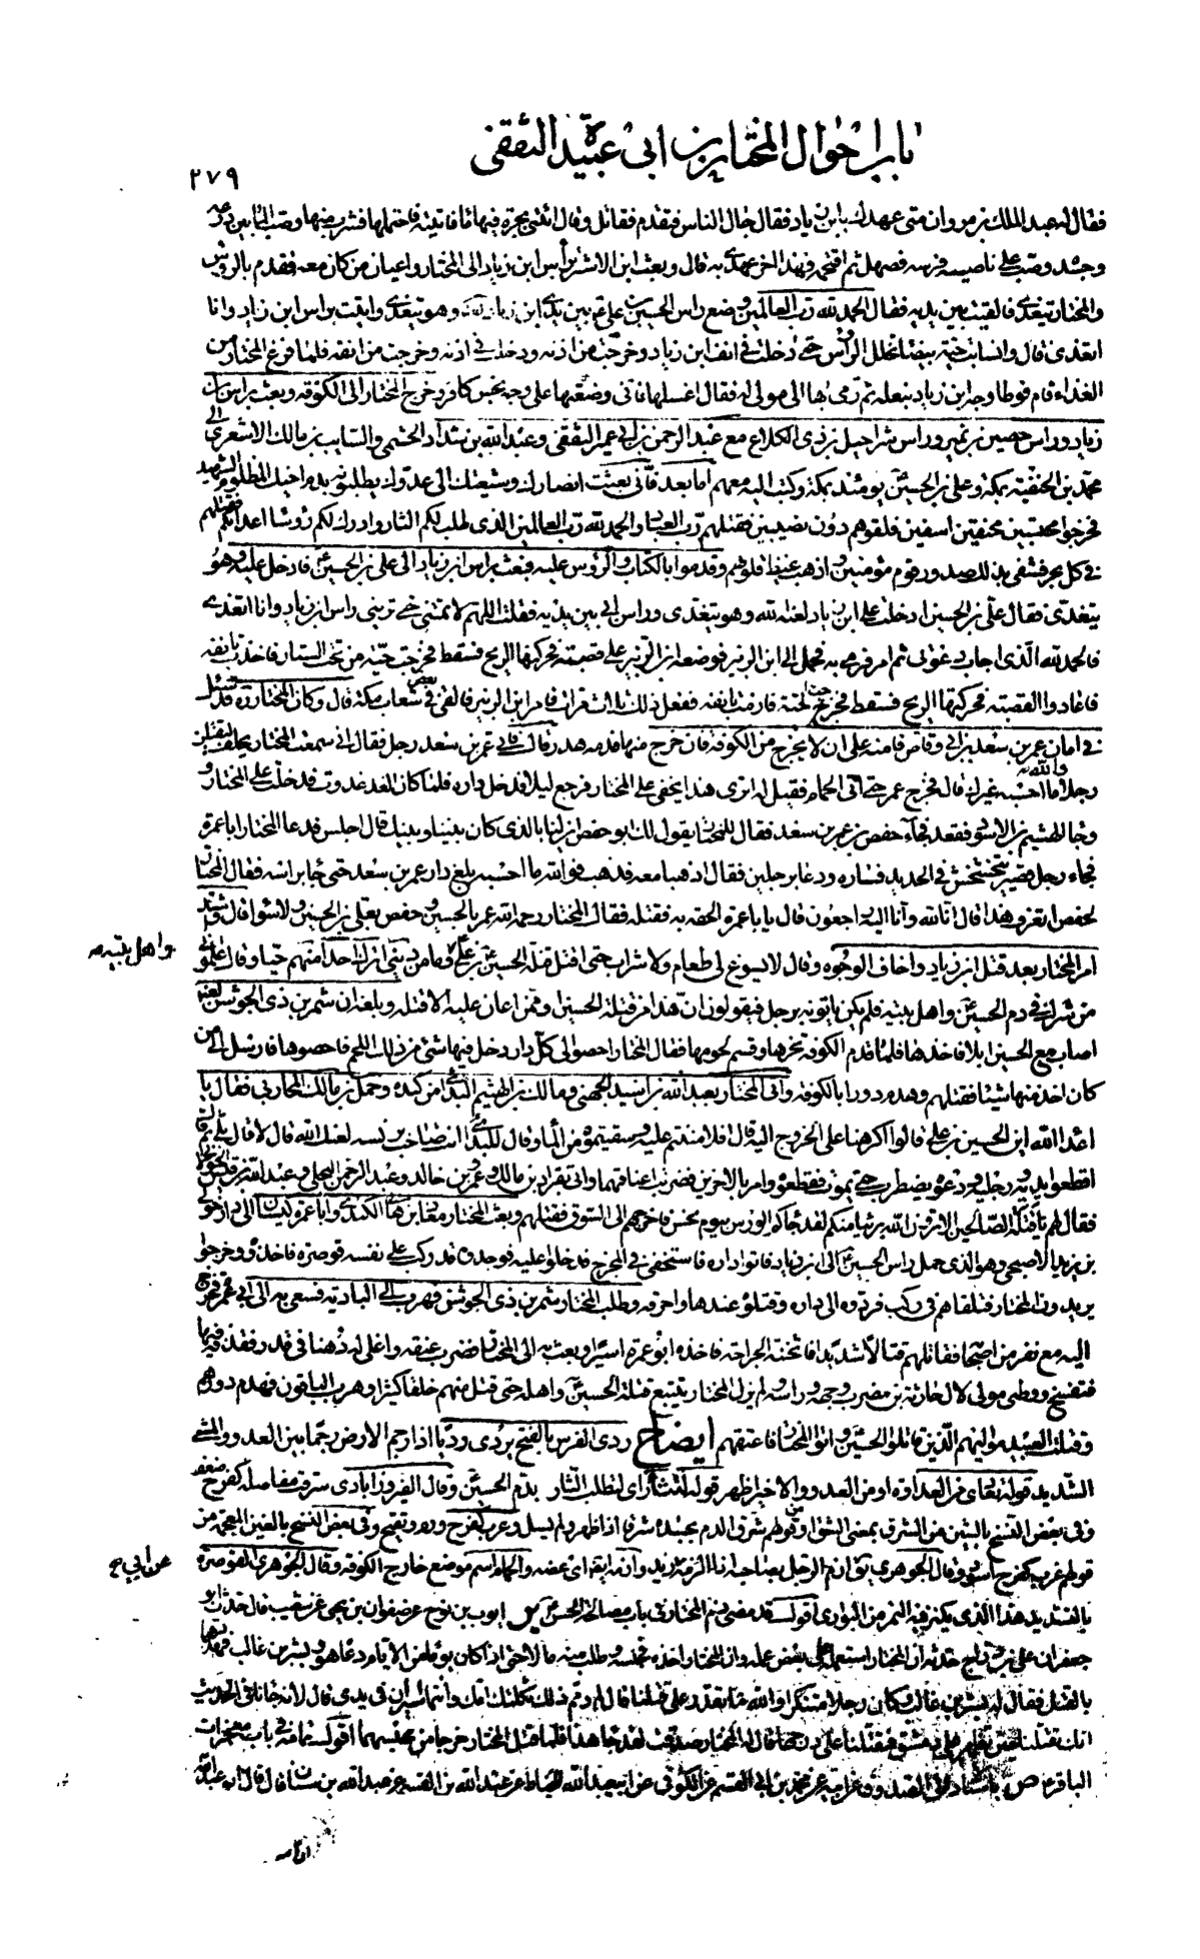 باب احوال المختار بن ابى عبيدة الثقفى
٢٧٩
فقال له عبد الملك بن مروان متى عهدك بابن زياد فقال جال الناس فتقدم فقاتل وقال ائتنى بجرة فيها ماء فاتيته فاحتملها فشرب منها وصب الماء بين درعه
وجسده وصب على ناصية فرسه فصهل ثم اقتحمه فهذا اخر عهدى به قال وبعث ابن الاشتر برأس ابن زياد الى المختار واعيان من كان معه فقدم بالرؤس
والمختار يتغدى فالقيت بين يديه فقال الحمد لله رب العالمين وضع راس الحسين بن على بين يدى ابن زياد وهو يتغدى واتيت براس ابن زياد وانا
اتغدى قال وانسابت حية بيضاء تخلل الرؤس حتى دخلت فى انف ابن زياد وخرجت من اذنه ودخلت فى اذنه وخرجت من انفه فلما فرغ المختار من
الغداء قام فوطأ وجه ابن زياد بنعله ثم رمى بها الى مولى له فقال اغسلها فانى وضعتها على وجه نجس كافر وخرج المختار الى الكوفة وبعث براس ابن
زياد وراس حصين بن نمير وراس شراحيل بن ذى الكلاع مع عبد الرحمن بن ابى عمير الثقفى وعبد الله بن شداد الجشمى والسايب بن مالك الاشعرى الى
محمد بن الحنفية بمكة وعلى بن الحسين يومئذ بمكة وكتب اليه معهم اما بعد فانى بعثت انصارك وشيعتك الى عدوك يطلبونه بدم اخيك المظلوم الشهيد
فخرجوا محتسبين محنقين اسفين فلقوهم دون نصيبين فقتلهم رب العباد والحمد لله رب العالمين الذى طلب لكم الثار وادرك لكم رؤساء اعدائكم فقتلهم
فى كل فج وغرقهم فى كل بحر فشفى بذلك صدور قوم مؤمنين واذهب غيظ قلوبهم وقدموا بالكتاب والرؤس عليه فبعث براس ابن زياد الى على بن الحسين فادخل عليه وهو
يتغدى فقال على بن الحسين ادخلت على ابن زياد لعنه الله وهو يتغدى وراس ابى بين يديه فقلت اللهم لا تمتنى حتى ترينى راس ابن زياد وانا اتغدى
فالحمد لله الذى اجاب دعوتى ثم امر فرمى به فحمل الى ابن الزبير فوضعه ابن الزبير على قصبة فحركتها الريح فسقط فخرجت حية من تحت الستار فاخذت بانفه
فاعادوا القصبة فحركتها الريح فسقط فخرجت الحية فازمت بانفه ففعل ذلك ثلاث مرات فامر ابن الزبير فالقى فى بعض شعاب مكة قال وكان المختار ره قد سئل
فى امان عمر بن سعد بن ابى وقاص فامنه على ان لا يخرج من الكوفة فان خرج منها فدمه هدر قال فاتى عمر بن سعد رجل فقال انى سمعت المختار يحلف ليقتلن
رجلا والله ما احسبه غيرك قال فخرج عمر حتى اتى الحمام فقيل له اترى هذا يخفى على المختار فرجع ليلا فدخل داره فلما كان الغد غدوت فدخلت على المختار و
وجاء الهيثم بن الاسود فقعد فجاء حفص بن عمر بن سعد فقال للمختار يقول لك ابو حفص انزلنا بالذى كان بيننا وبينك قال اجلس فدعا المختار ابا عمرة
فجاء رجل قصير يتخشخش فى الحديد فساره ودعا برجلين فقال اذهبا معه فذهب فوالله ما احسبه بلغ دار عمر بن سعد حتى جاء براسه فقال المختار
لحفص اتعرف هذا قال انا لله وانا اليه راجعون قال يا با عمرة الحقه به فقتله فقال المختار رحمه الله عمر بالحسين وحفص بعلى بن الحسين ولا سواء قال واشتد
امر المختار بعد قتل ابن زياد واخاف الوجوه وقال لا يسوغ لى طعام ولا شراب حتى اقتل قتلة الحسين بن على واهل بيته وما من دينى اترك احدا منهم حيا وقال اعلمونى
من شرك فى دم الحسين واهل بيته فلم يكن ياتونه برجل فيقولون ان هذا من قتلة الحسين او ممن اعان عليه الا قتله وبلغه ان شمر بن ذى الجوشن لعنه الله
اصاب مع الحسين ابلا فاخذها فلما قدم الكوفة نحرها وقسم لحومها فقال المختار احصوا لى كل دار دخل فيها شئ من ذلك اللحم فاحصوها فارسل الى من
كان اخذ منها شيئا فقتلهم وهدم دورا بالكوفة واتى المختار بعبد الله بن اسيد الجهنى ومالك بن الهيثم البداى من كندة وحمل بن مالك المحاربى فقال يا
اعداء الله اين الحسين بن على قالوا اكرهنا على الخروج اليه قال افلا مننتم عليه وسقيتموه من الماء وقال للبداى انت صاحب برنسه لعنك الله قال لا قال بلى ثم قال
اقطعوا يديه ورجليه ودعوه يضطرب حتى يموت فقطعوه وامر بالاخرين فضربت اعناقهما واتى بقراد بن مالك وعمرو بن خالد وعبد الرحمن البجلى وعبد الله بن قيس الخولانى
فقال لهم يا قتلة الصالحين الا ترون الله برئيا منكم لقد جاءكم الورس بيوم نحس فاخرجهم الى السوق فقتلهم وبعث المختار معاذ بن هانى الكندى وابا عمرة كيسان الى دار خولى
بن يزيد الاصبحى وهو الذى حمل راس الحسين الى ابن زياد فاتوا داره فاستخفى فى المخرج فدخلوا عليه فوجدوه قد ركب على نفسه قوصرة فاخذوه وخرجوا
يريدون المختار فتلقاهم فى ركب فردوه الى داره وقتله عندها واحرقه وطلب المختار شمر بن ذى الجوشن فهرب الى البادية فسعى به الى ابى عمرة فخرج
اليه مع نفر من اصحابه فقاتلهم قتالا شديدا فاثخنته الجراحة فاخذه ابو عمرة اسيرا وبعث به الى المختار فضرب عنقه واغلى له دهنا فى قدر فقذفه فيها
فتفسخ ووطى مولى لال حارثة بن مضرب وجهه وراسه ولم يزل المختار يتتبع قتلة الحسين واهله حتى قتل منهم خلقا كثيرا وهرب الباقون فهدم دورهم
وقتلت العبيد مواليهم الذين قاتلوا الحسين واتوا المختار فاعتقهم ايضاح ردى الفرس بالفتح يردى رديا اذا رجم الارض رجما بين العدو والمشى
الشديد قوله تعادى من العداوة او من العدو والاخير اظهر قوله لنثأر اى لنطلب الثار بدم الحسين وقال الفيروزابادى سرقت مفاصله كفرح ضعفت
وفى بعض النسخ بالشين من الشرق بمعنى الشق او من قولهم شرق الدم بجسده شرقا اذا ظهر ولم يسل وعرب كفرح ورم وتقيح وفى بعض النسخ بالغين المعجمة من
قولهم غرب كفرح اسود وقال الجوهرى يق ازم الرجل بصاحبه اذا لزمه وازمه ايضا اى عضه والحمام اسم موضع خارج الكوفة وقال الجوهرى القوصرة
بالتشديد هذا الذى يكنز فيه التمر من البوارى اقول قد مضى ذم المختار فى باب مصالحة الحسن ايوب بن نوح عن صفوان بن يحيى عن شعيب قال حدثنى ابو
جعفر ان على بن دراج حدثه ان المختار استعمله على بعض عمله وان المختار اخذه فحبسه وطلب منه مالا حتى اذا كان يوما من الايام دعاه هو وبشر بن غالب فهددهما
بالقتل فقال له بشر بن غالب وكان رجلا متنكرا والله ما تقدر على قتلنا قال لم ومم ذلك ثكلتك امك وانتما اسيران فى يدى قال لانه جاءنا فى الحديث
انك تقتلنا حين تظهر على دمشق فتقتلنا على درجها قال له المختار صدقت لقد جاء هذا فلما قتل المختار خرجا من محبسهما اقول تمامه فى باب معجزات
الباقر ص بالاسناد الى الصدوق عن ابيه عن محمد بن ابى القسم عن الكوفى عن ابى عبد الله الخياط عن عبد الله بن القسم عن عبد الله بن سنان قال قال ابو عبد الله
واهل بيته
عن أبى